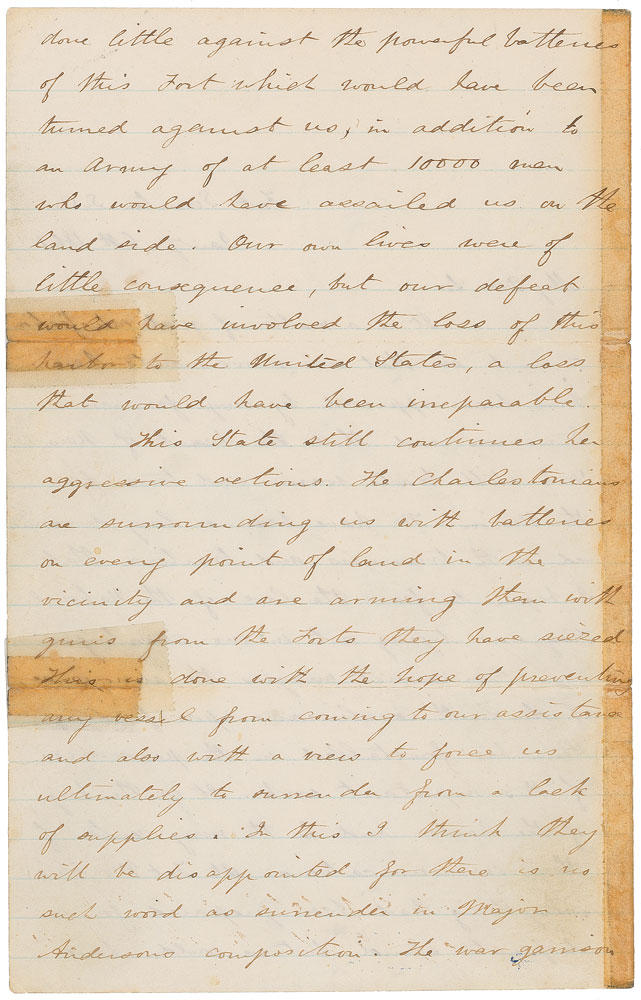 done little against the powerful batteries
of this Fort which would have been
turned against us, in addition to
an Army of at least 10000 men
who would have assailed us on the
land side. Our own lives were of
little consequence, but our defeat
would have involved the loss of this
harbor to the United States, a loss
that would have been irreparable.
This State still continues her
aggressive actions. The Charlestonians
are surrounding us with batteries
on every point of land in the
vicinity and are arming them with
guns from the Forts they have siezed
This is done with the hope of preventing
any vessel from coming to our assistance
and also with a view to force us
ultimately to surrender from a lack
of supplies. In this I think they
will be disappointed for there is no
such word as surrender in Major
Andersons composition. The war garrison